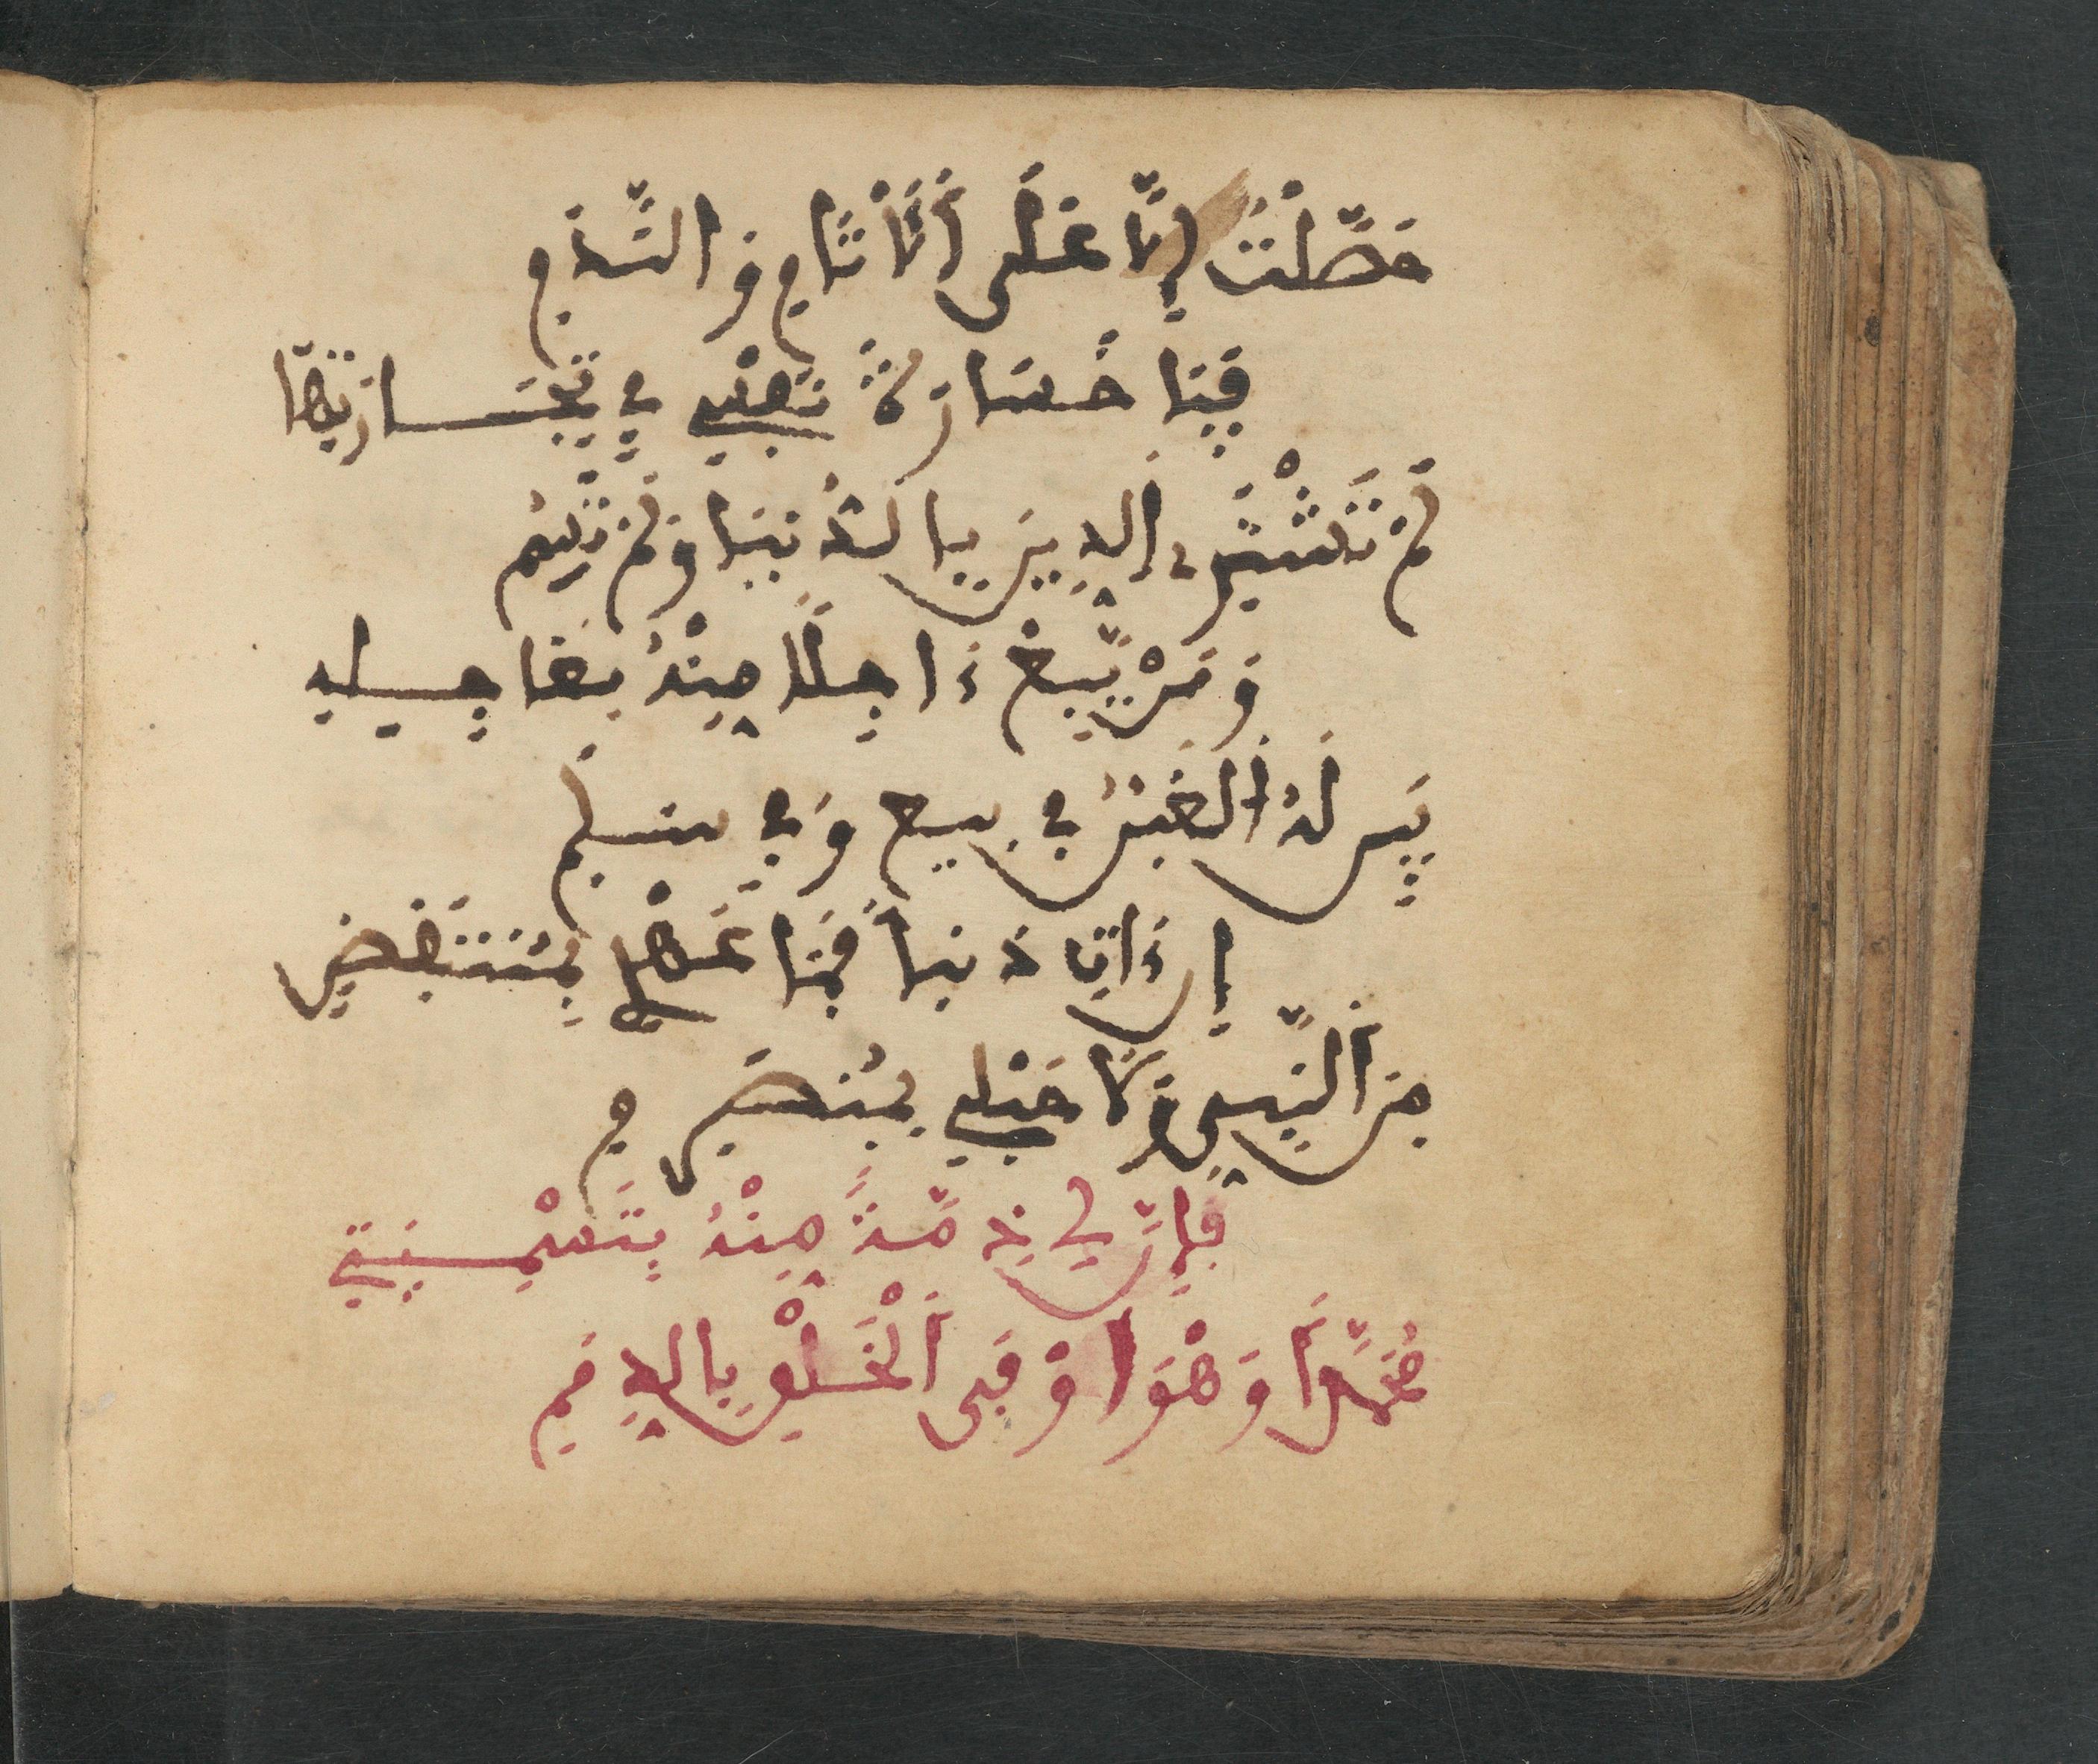 حَصَّلْتُ إِلَّا عَلَى ٱلْأَثَامِ وَالنَّدَمِ
فَيَا خَسَارَةَ نَفْسِي فِي تِجَارَتِهَا
لَمْ تَشْتَرِ ٱلدِّينَ بِالدُّنْيَا وَلَمْ تَسُمِ
وَمَنْ يَّبِعْ ءَاجِلًا مِنْهُ بِعَاجِلِهِ
يَبِنْ لَهُ ٱلْغَبْنُ فِي بَيْعٍ وَفِي سَلَمِ
إِنْ ءَاتِ ذَنْبًا فَمَا عَهْدِي بِمُنْتَقِضٍ
مِنَ ٱلنَّبِيِّ وَلَا حَبْلِي بِمُنْصَرِمِ
فَإِنَّ لِي ذِمَّةً مِنْهُ بِتَسْمِيَتِي
مُحَمَّدًا وَهْوَ أَوْفَى ٱلْخَلْقِ بِالذِّمَمِ